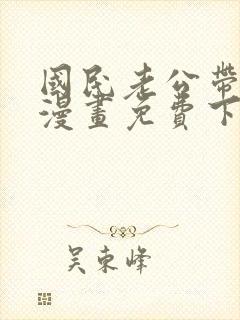 國民老公帶
漫畫免費下
吴東峰